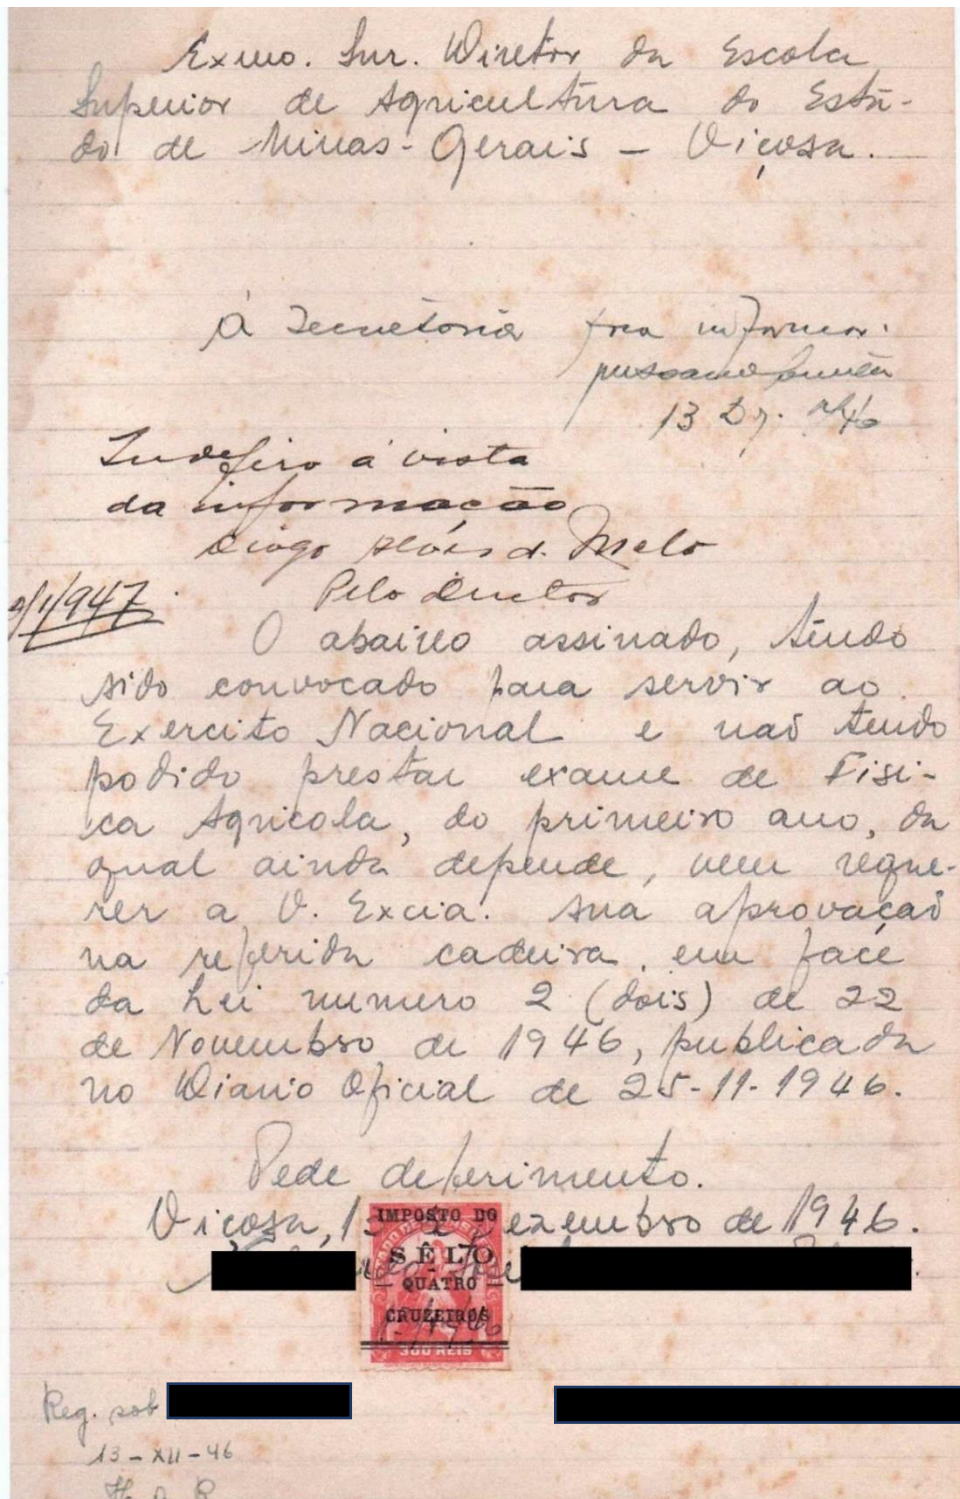 Exmo. Snr. Diretor da Escola
Superior de Agricultura do Esta-
do de Minas-Gerais – Viçosa.
À Secretaria pra informar.
13 Dz. 946
Indefiro á vista
da informação
Diogo Alves d. Melo
Pelo director
9/1/947
O abaixo assinado, tendo
sido convocado para servir ao
Exercito Nacional e naõ tendo
podido prestar exame de Fisi-
ca Agricola, do primeiro ano, da
qual ainda depende, vem reque-
rer a V. Excia. sua aprovaçaõ
na referida cadeira, em face
da Lei numero 2 (dois) de 22
de Novembro de 1946, publicada
no Diario Oficial de 25-11-1946.
Pede deferimento.
Viçosa, 13 de Dezembro de 1946.
IMPOSTO DO
SÊLO
QUATRO
CRUZEIROS
300 REIS
Reg. sob
13-XII-46